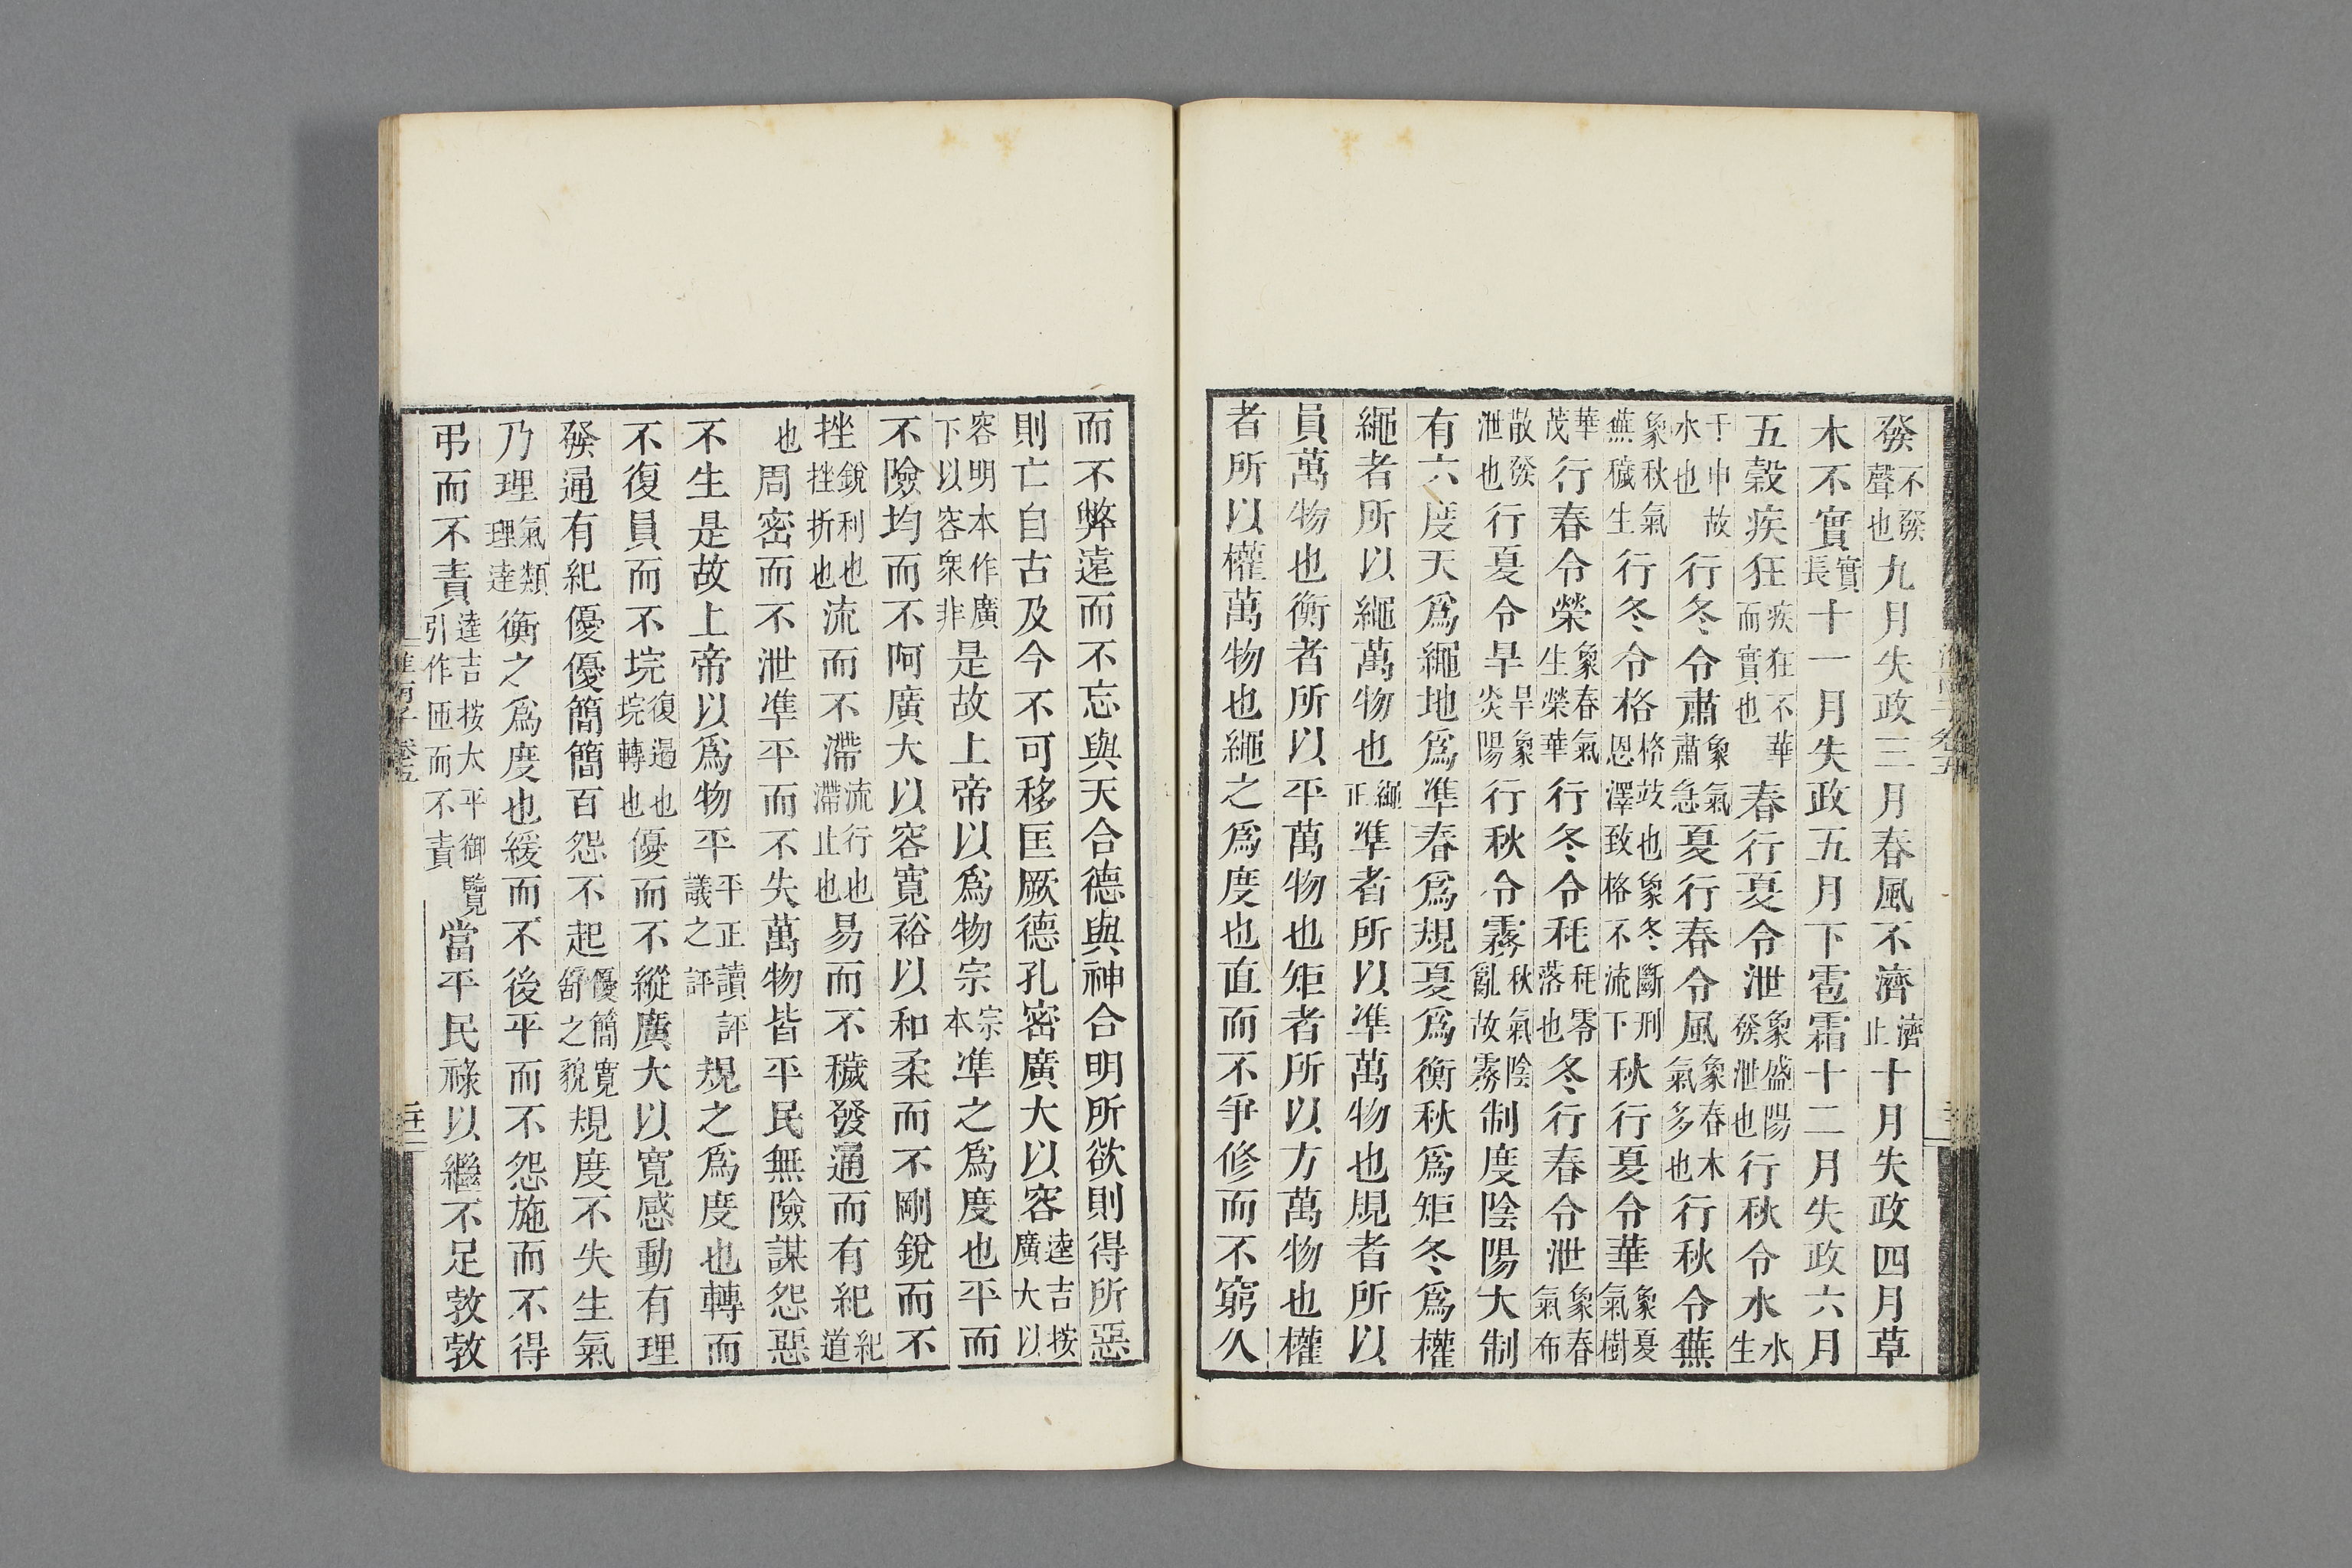 發不發聲也九月失政三月春風不濟濟止十月失政四月草
木不實實長十一月失政五月下雹霜十二月失政六月
五穀疾狂疾狂不華而實也春行夏令泄象盛陽發泄也行秋令水水生
于申故水也行冬令肅象氣肅急夏行春令風象春木氣多也行秋令蕪
象秋氣蕪穢生行冬令格格攱也象冬斷刑恩澤致格不流下秋行夏令華象夏氣樹
華茂行春令榮象春氣生榮華行冬令耗耗零落也冬行春令泄象春氣布
散發泄也行夏令旱旱象炎陽行秋令霧秋氣陰亂故霧制度陰陽大制
有六度天爲繩地爲準春爲規夏爲衡秋爲矩冬爲權
繩者所以繩萬物也繩正準者所以準萬物也規者所以
員萬物也衡者所以平萬物也矩者所以方萬物也權
者所以權萬物也繩之爲度也直而不爭修而不窮久
而不弊遠而不忘與天合德與神合明所欲則得所惡
則亡自古及今不可移匡厥德孔密廣大以容逵吉按廣大以
容明本作廣下以容衆非是故上帝以爲物宗宗本準之爲度也平而
不險均而不阿廣大以容寬裕以和柔而不剛銳而不
挫銳利也挫折也流而不滯流行也滯止也易而不穢發通而有紀紀道
也周密而不泄準平而不失萬物皆平民無險謀怨惡
不生是故上帝以爲物平平正讀評議之評規之爲度也轉而
不復員而不垸復遏也垸轉也優而不縱廣大以寬感動有理
發通有紀優優簡簡百怨不起優簡寬舒之貌規度不失生氣
乃理氣類理達衡之爲度也緩而不後平而不怨施而不得
弔而不責逵吉按太平御覽引作匝而不責當平民祿以繼不足敦敦
淮南子卷五